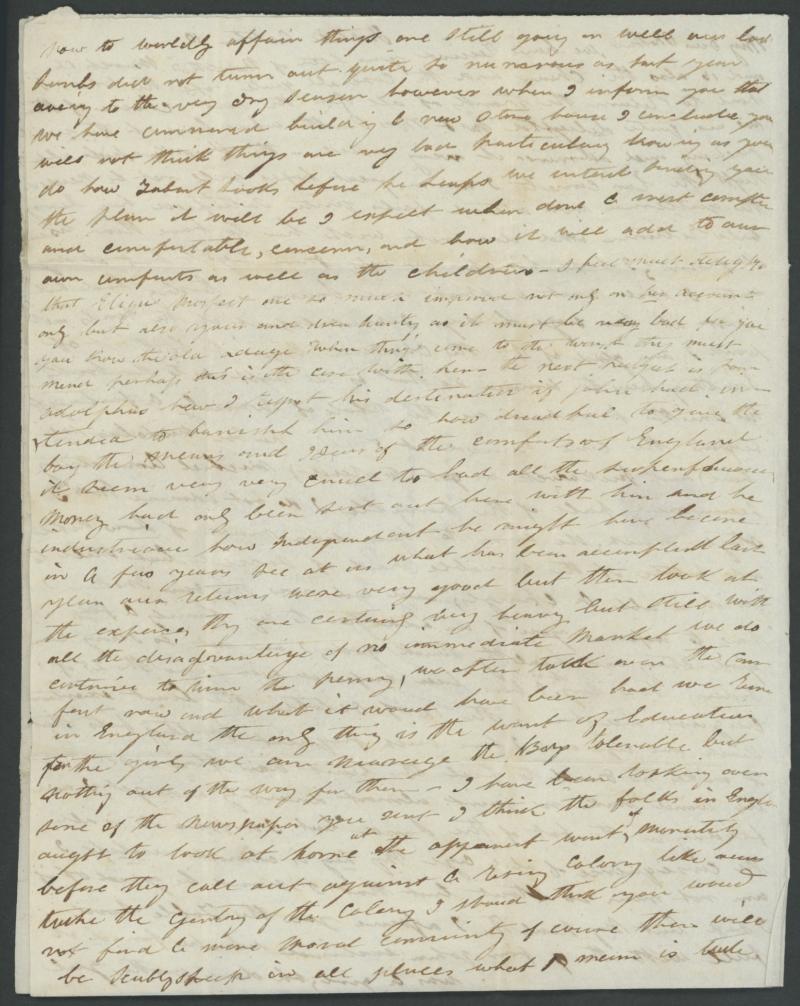 now to worldly affairs things are still going on well our last
lambs did not turn out quite so numerous as last year
owing to the very dry season however when I inform you that
we have commenced building a new stone house I conclude you
will not think things are very bad particulary knowing as you
do how Tabart looks before he leaps we intend sending you
the plan it will be I expect when done a most complete
and comfortable, concern, and how it will add to our
own comforts as well as the childrens - I feel much delight
that Elizas prospect are so much improved not only on her account
only but also yours and dear as it must be very bad for you
you know the old adage when things come to the worst they must
mend perhaps this is the case with her - the next subject is poor
adolphus how I regret his destination if John had in-
tended to banish him so how dreadful to give the
boy the means and ideas of the comforts of England
it seem very very cruel to bad all the superfluous
money had only been sent out here with him and he
industrious how Independent he might have become
in a few years see at us what has been accomplishd last
year our returns were very good but then look at
the expences they are certainly very heavy but still with
all the disadvantage of no immediate Market we do
contrive to turn the penny, we often talk over the com
fort now and what it would have been had we been
in England the only thing is the want of Education
for the girls we can manage the Boys tolerable but
nothing out of the way for them - I have been looking over
some of the newspaper you sent I think the folks in Engla
ought to look at home at the apparent want of morality
before they call out against a rising Colony like ours
take the gentry of the Colony I should think you would
not find a more moral community of course there will
be scabby sheep in all places what I mean is take